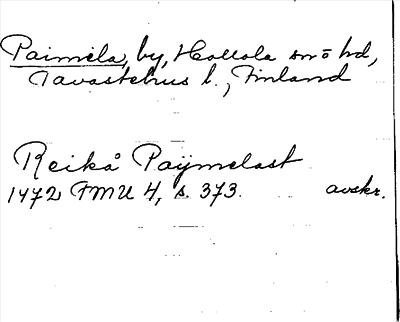 Paimela, by, Hollola sn o hd,
Tavastehus l., Finland
Reikå Paÿmelast
1472 FMU 4, s. 373. avskr.